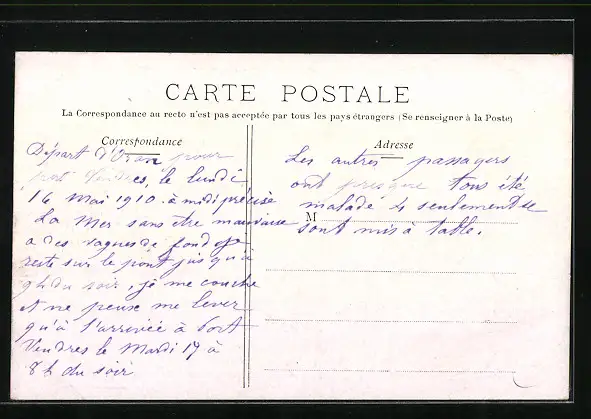 CARTE POSTALE
La Correspondance au recto n'est pas acceptée par tous les pays étrangers (Se renseigner à la Poste)
Correspondance
Départ d'Oran pour
port Vendres, le lundi
16 Mai 1910 à midi précise
La Mer sans être mauvaise
a des vagues de fond je
reste sur le pont jusqu'à
9h du soir, je me couche
et ne peux me lever
qu'à l'arrivée à Port
Vendres le Mardi 17 à
8h du soir
Adresse
Les autres passagers
ont presque tous été
malade 4 seulement se
M
sont mis à table.